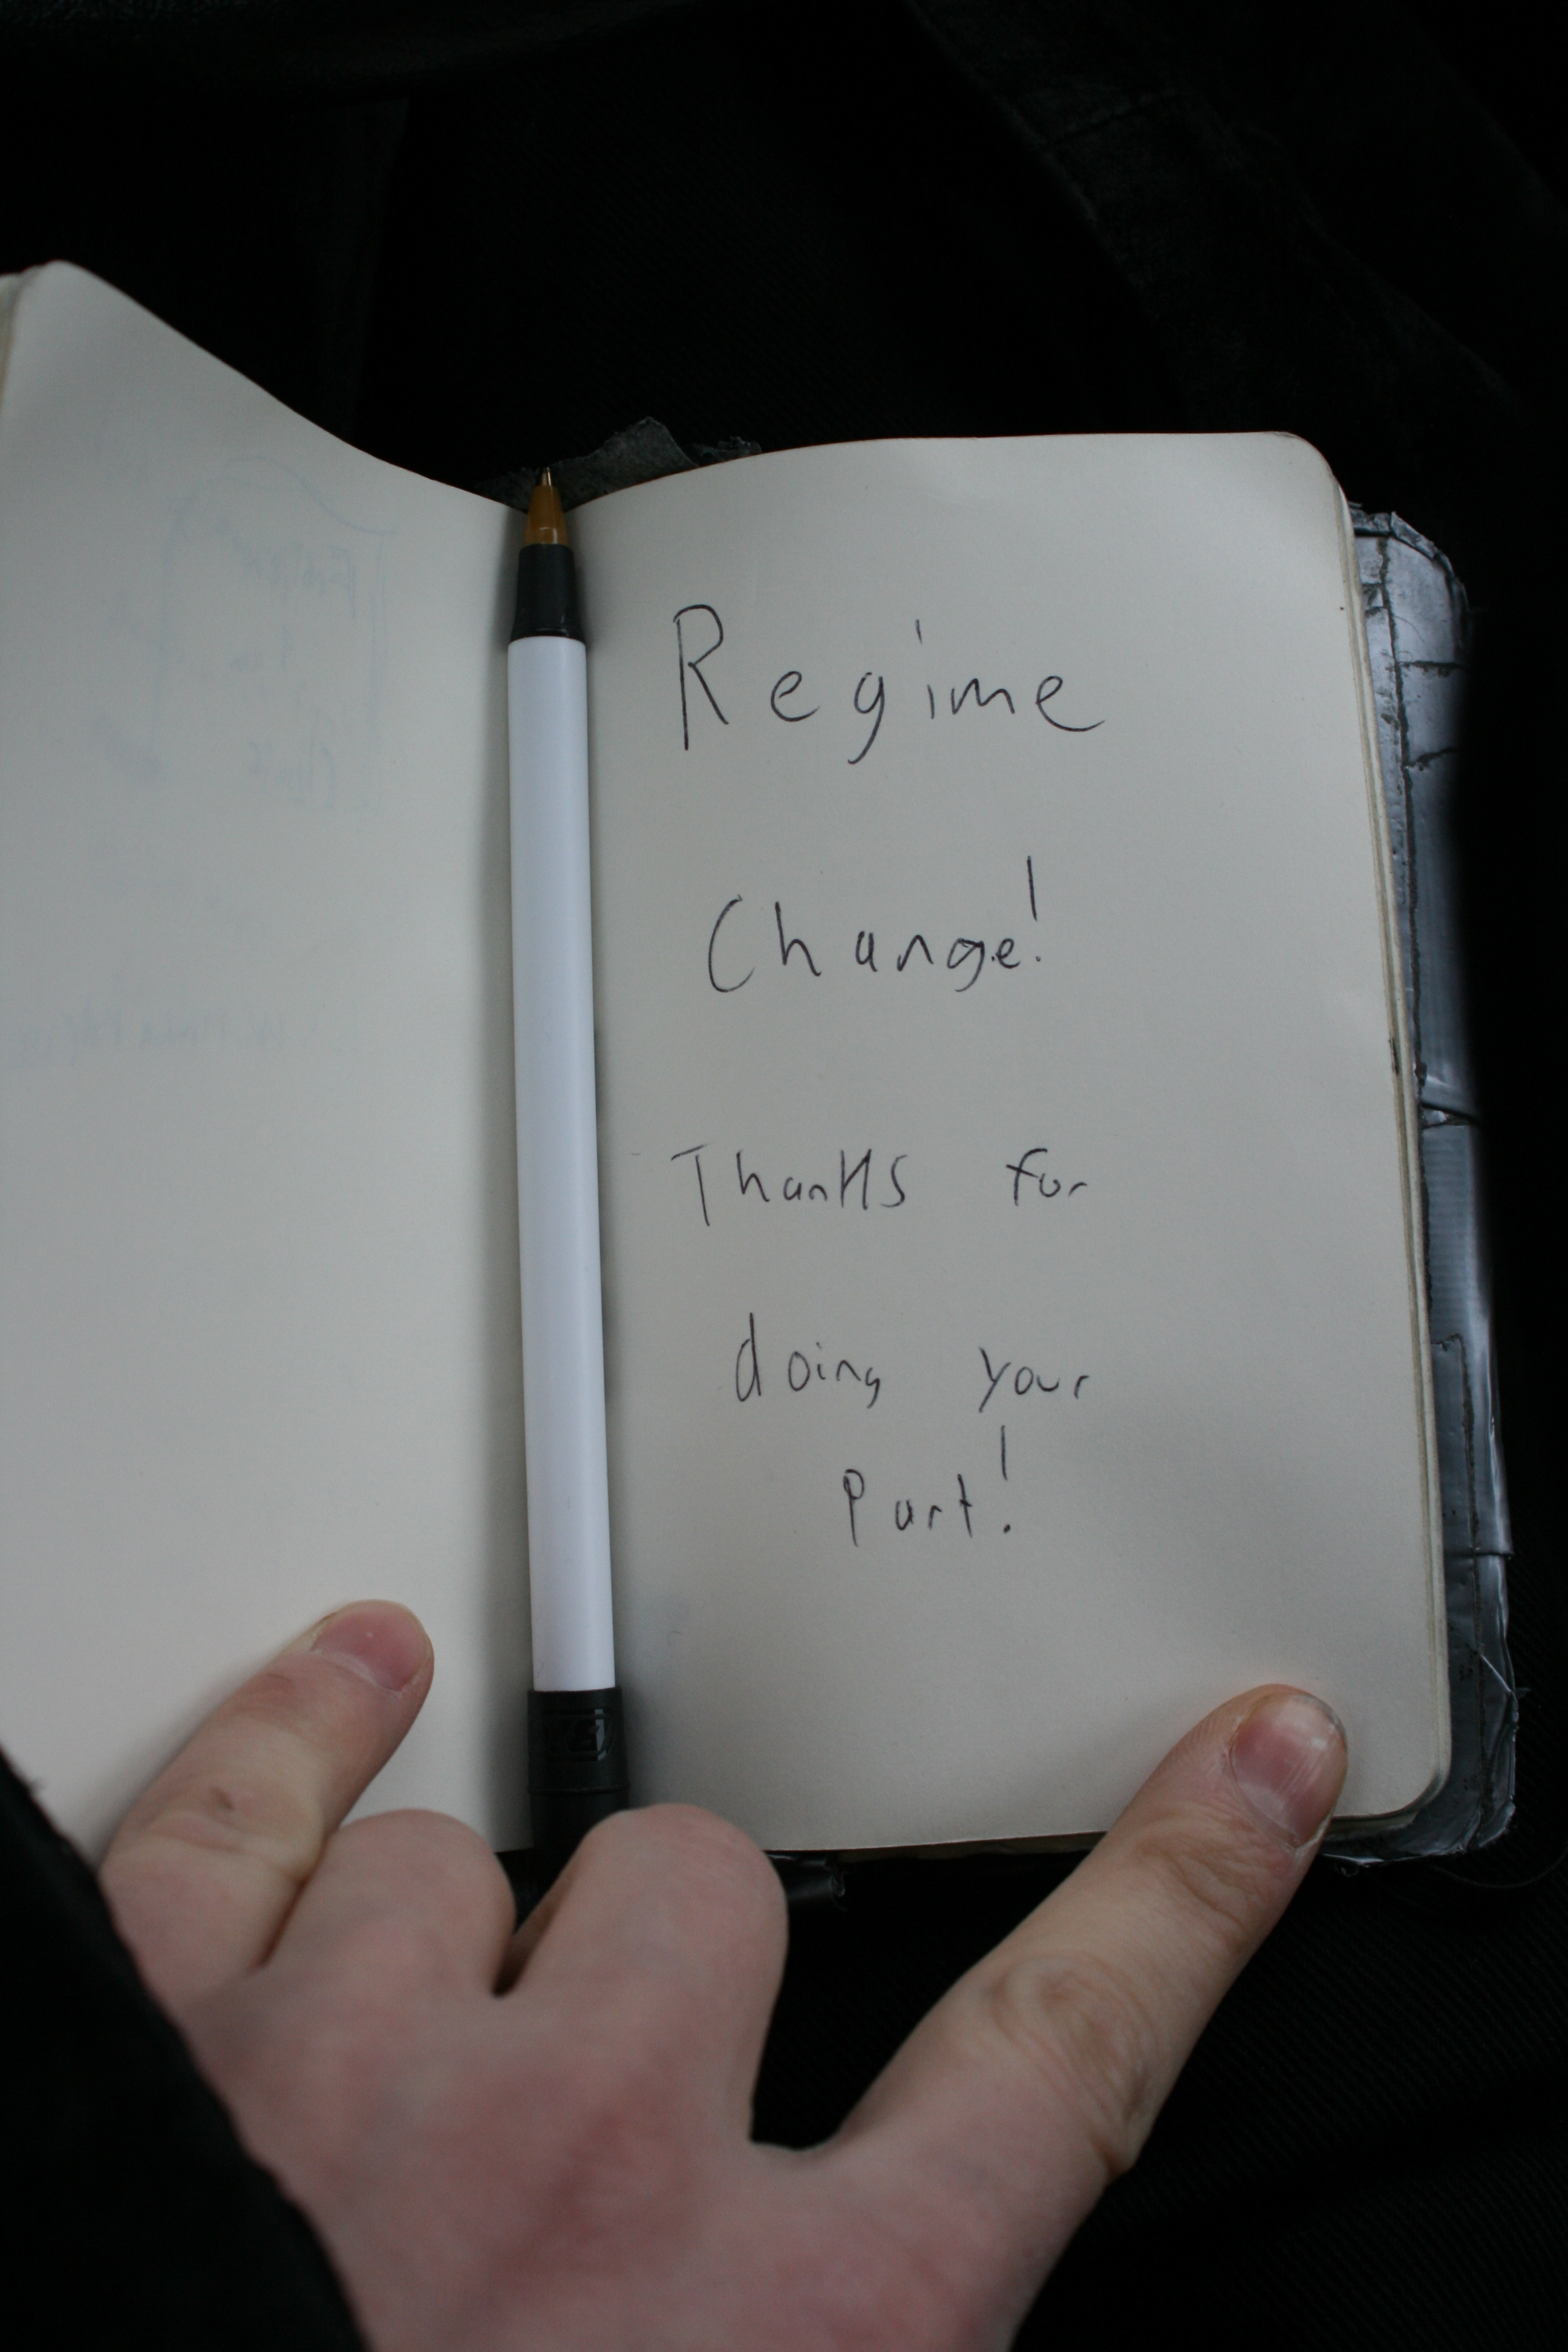 Regime
Change!
Thanks for
doing your
Part!